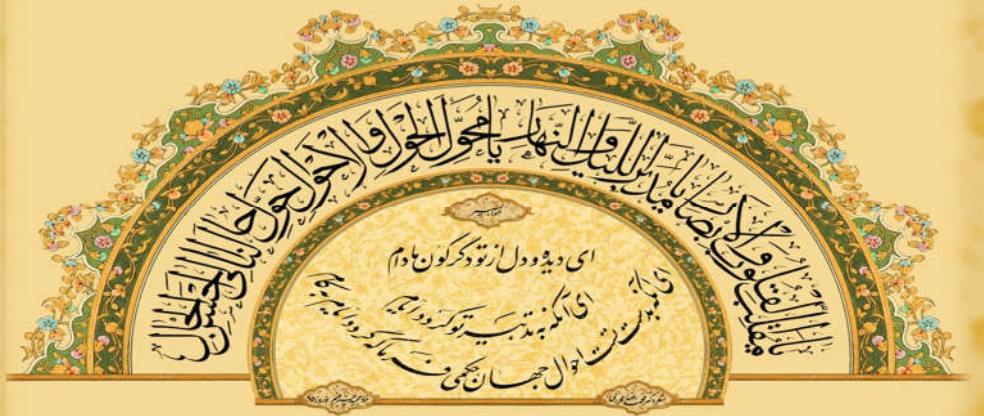 یا مقلب القلوب و الابصار یا مدبر اللیل و النهار یا محول الحول و الاحوال حول حالنا الی احسن الحال
ای دیده و دل از تو دگرگون مادام
ای آنکه به تدبیر تو گردد ایام
ای آنکه به دست تست احوال جهان
حکمی فرما که گردد ایام به کام